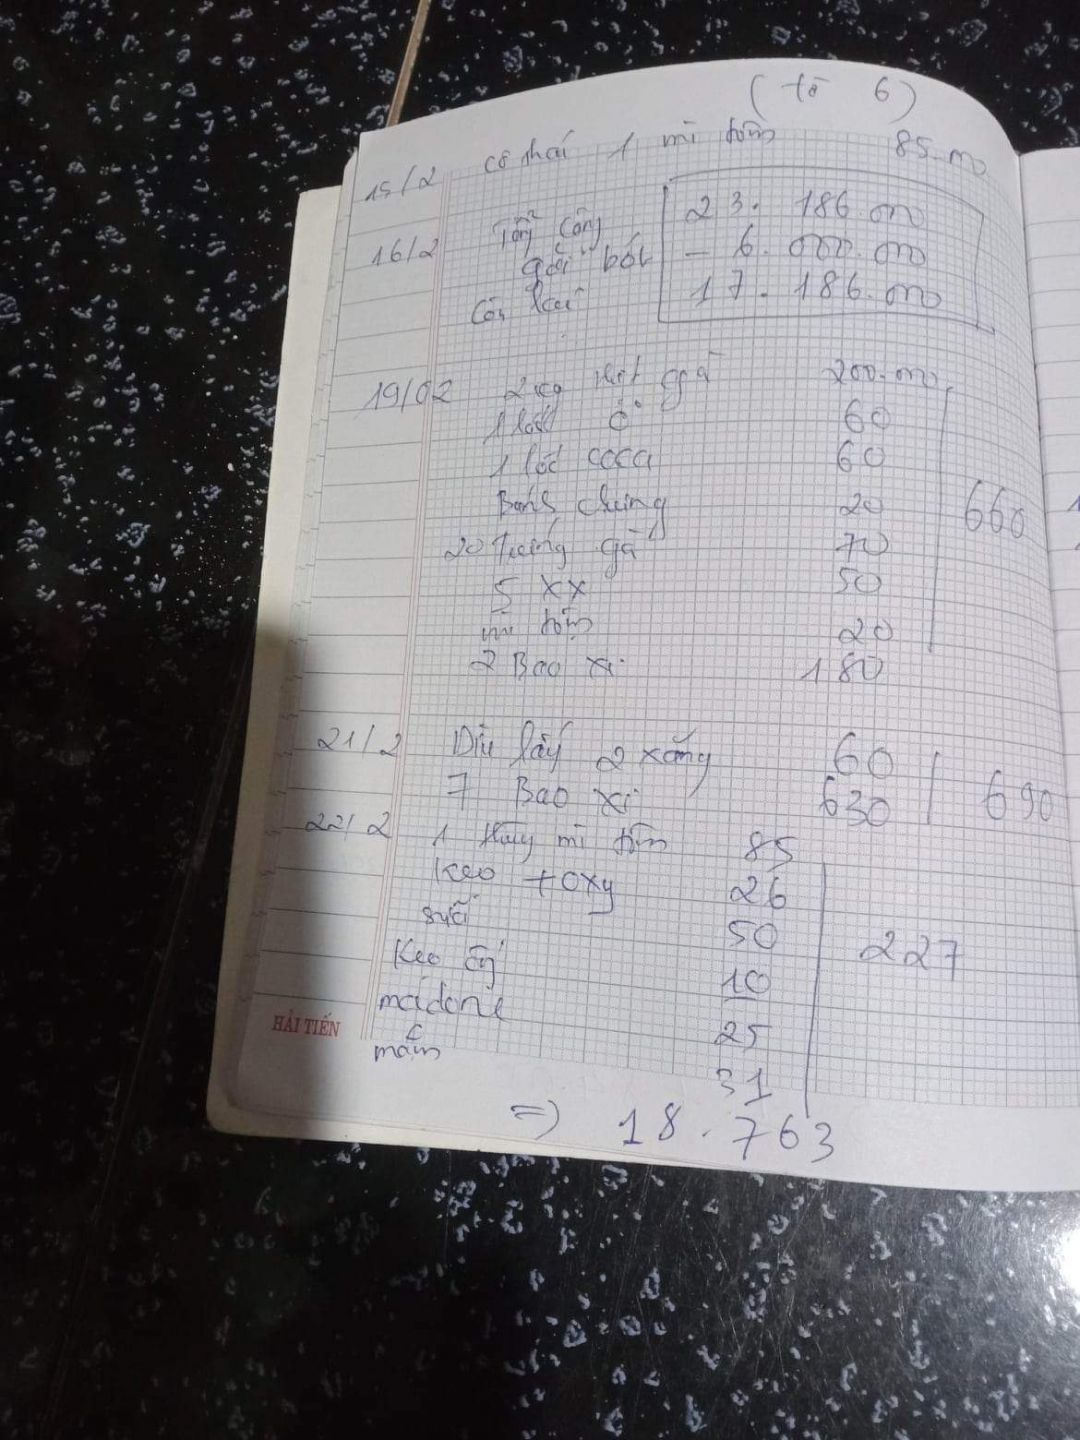 (tờ 6)
15/2 cô thái 1 mì tôm 85.000
16/2 Tổng Cộng 23.186.000
gửi bớt - 6.000.000
Còn lại 17.186.000
19/02 2kg thịt gà 200.000
1 lốc 60
1 lốc coca 60
Bánh chưng 20
20 Trứng gà 70
5 xx 50
mì tôm 20
2 Bao xi 180
660
21/2 Dìu lấy 2 xăng 60
7 Bao xi 630
690
22/2 1 thùng mì tôm 85
Keo + oxy 26
suối 50
Keo ống 10
227
25
mắm 31
HẢI TIẾN
=) 18.763